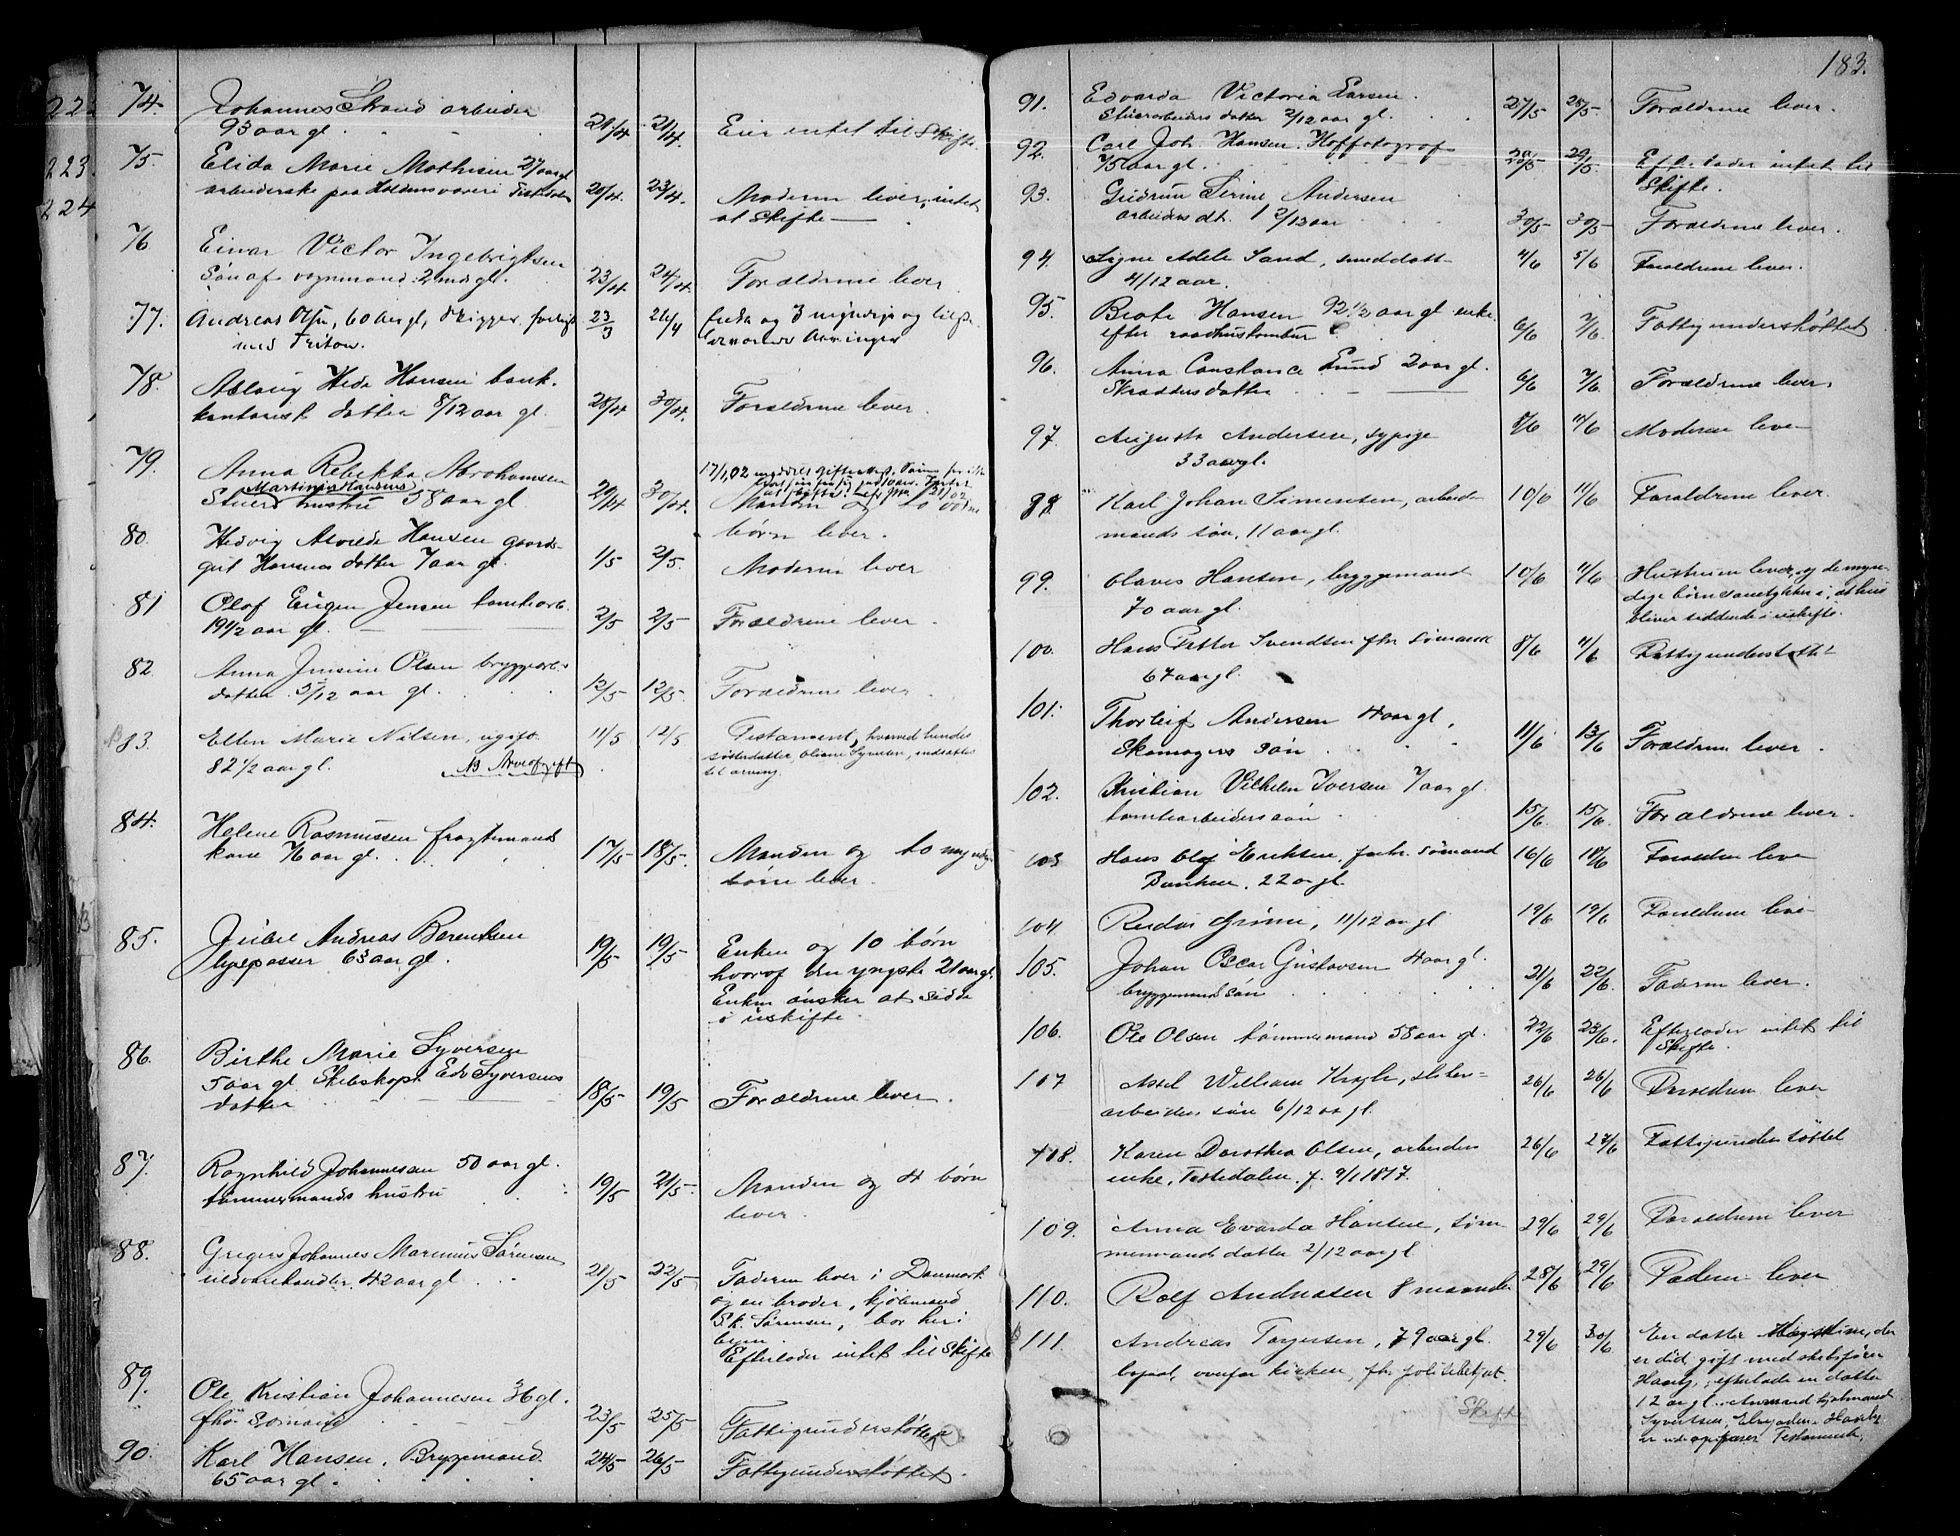 22
223
224
74. Johannes Strand arbeider
93 aar gl. 21/4 21/4. Eier intet til Skifte.
75 Elida Marie Mathisen 27 aar gl
arbeiderske paa Haldensvæveri Tistedalen 20/4. 23/4. Moderen lever, intet
at Skifte —
76 Einar Victor Ingebrigtsen
Søn af vognmand. 2 md gl. 23/4 24/4. Forældrene lever
77. Andreas Olsen, 60 aar gl, Skipper, forlist 23/3 26/4 Enke og 3 myndige
med Triton. arvinger
78. Aslaug Hansen bank-
datter 8/12 aar gl. 28/4 30/4. Forældrene lever.
79. Anna Rebekka Abrahamsen
Martinius Hansens
hustru 58 aar gl 29/4 30/4. Manden og to voksne
80. Hedvig Alvilde Hansen gaards-
gut Hansens datter 7 aar gl. 1/5 2/5. børn lever.
Moderen lever
81 Olaf Eugen Jensen tomtearb.
19 1/2 aar gl. — 2/5 2/5 Forældrene lever.
82. Anna Jensine Olsen bryggearb.
datter 5/12 aar gl. 12/5 12/5 Forældrene lever.
83. Ellen Marie Nilsen, ugift 11/5 12/5 Testament, hvorved hendes
82 1/2 aar gl. NB Arveafgift søsterdatter, Oliane Syman, indsættes
til arving.
84. Helene Rasmussen fragtemands
kone 76 aar gl. 17/5 18/5. Manden og to myndige
børn lever.
85. Juliel Andreas Berentsen
lygepasser 63 aar gl. 19/5 19/5 Enken og 10 børn
hvoraf den yngste 21 aar gl.
Enken ønsker at sidde
i uskifte.
86. Birthe Marie Syversen
5 aar gl. Skibskapt Edv Syversens
datter 18/5 19/5 Forældrene lever.
87. Ragnhild Johannesen 50 aar gl.
tømmermands hustru 19/5 21/5. Manden og 4 børn
lever.
88. Gregers Johannes Marinius Sørensen
uldvarehandler 42 aar gl. 21/5 22/5 Faderen lever i Danmark
og en broder, kjøbmand
S.K. Sørensen, bor her i
byen.
Efterlader intet til Skifte
89. Ole Kristian Johannesen 36 gl.
fhv Sømand 23/5 25/5 Fattigunderstøttet
90. Karl Hansen, Bryggemand
65 aar gl. 24/5 26/5 Fattigunderstøttet.
183.
91. Edvarda Victoria Larsen.
datter 2/12 aar gl. 27/5 28/5- Forældrene lever.
92. Carl Joh Hansen. Hoffotograf
75 aar gl. 29/5 Efterlader intet til
Skifte.
93. Gudrun Serine Andersen
arbeiders dt. 1 2/12 aar 30/5 30/5 Forældrene lever.
94. Signe Adele Sand, smeddatt- 4/6 5/6 Forældrene lever.
4/12 aar.
95. Beate Hansen 92 1/2 aar gl enke
efter raadhustambur 6/6 7/6. Fattigunderstøttet
96. Anna Constance Lund 2 aar gl.
Skrædders datter 6/6 7/6. Forældrene lever.
97. Augusta Andersen, sypige 8/6 11/6 Moderen leve-
33 aar gl.
98 Karl Johan Simensen, arbeid- 10/6 11/6 Forældrene lever.
mands søn, 11 aar gl.
99. Olaves Hansen, bryggemand 10/6 11/6 Hustruen lever, og de myn-
70 aar gl. dige børn samtykker i, at hun
bliver siddende i uskifte.
100. Hans Petter Svendsen fhv. sømand 8/6 11/6 Fattigunderstøtt-
67 aar gl.
101. Thorleif Andersen 4 aar gl.
Skomagers søn 11/6 13/6 Forældrene lever.
102. Kristian Vilhelm Iversen 7 aar gl.
tomtearbeiders søn 15/6 15/6 Forældrene lever.
103 Hans Olaf Eriksen, forh. sømand 16/6 18/6 Forælden leve
22 a gl.
104 Reidar Grimi, 11/12 aar gl 19/6 19/6 Forældrene leve-
105. Johan Oscar Gustavsen 4 aar gl.
bryggemands søn 21/6 22/6. Faderen lever.
106. Ole Olsen tømmermand 58 aar gl. 22/6 23/6. Efterlader intet til
Skifte.
107 Axel William Krogh, sliberi- 26/6 26/6 Forældrene lever
arbeiders søn 6/12 aar gl.
108. Karen Dorothea Olsen, arbeider 26/6 27/6 Fattigunderstøttet
enke, Tistedalen. f. 9/1 1817.
109. Anna Evarda Hansen, tøm- 29/6 29/6 Forældrene lever
mermands datter 2/12 aar gl.
110. Rolf Andreasen 8 maaneder 28/6 29/6 Faderen lever
111. Andreas Torgersen, 79 aar gl. 29/6 30/6 En datter, der
bopæl, overfor kirken, fhv. politibetjent. er død, gift med skibsfører
Haaby, efterlade en datter
12 aar gl.
Skifte Syvertsen,
Testamente.